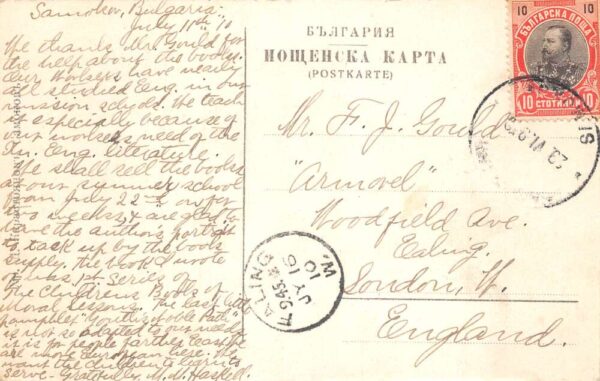 Samokov, Bulgaria
July 11th '10
We thank Mr Gould for
the help about the books.
Our workers have nearly
all studied Eng. in our
mission schools. We teach
it especially because of
our workers need of the
Xn. Eng. literature.
We shall sell the books
at our summer school
from July 22nd on for
two weeks & are glad to
have the author's portrait
to tack up by the book
supply. The book I wrote
of was 1st Series of
The Children's Book of
Moral Lessons. The last
pamphlet "On the Noble Path"
is not so adapted to our needs
it is for people farther east. We
are more European here. We
want the children to learn to
serve - Gratefully M. M. Haskell.
БЪЛГАРИЯ
ПОЩЕНСКА КАРТА
(POSTKARTE)
Mr. F. J. Gould
"Armorel"
Woodfield Ave.
Ealing.
London, W.
England.
10 10
БЪЛГАРСКА ПОЩА
10 СТОТИНКИ 10
EALING
9.45
JY 16
10
W.